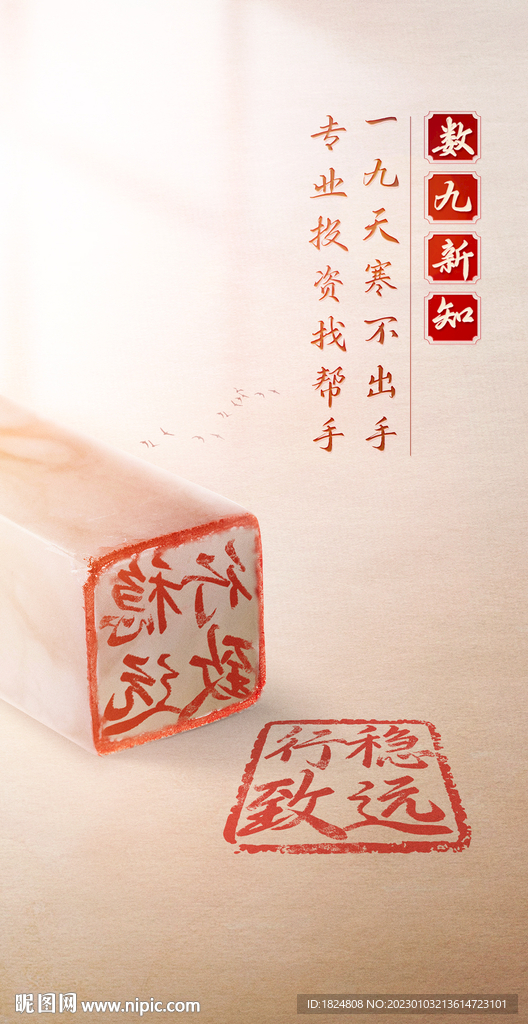 数九新知
一九天寒不出手
专业投资找帮手
行稳
致远
行稳
致远
昵图网 www.nipic.com
ID:1824808 NO:20230103213614723101